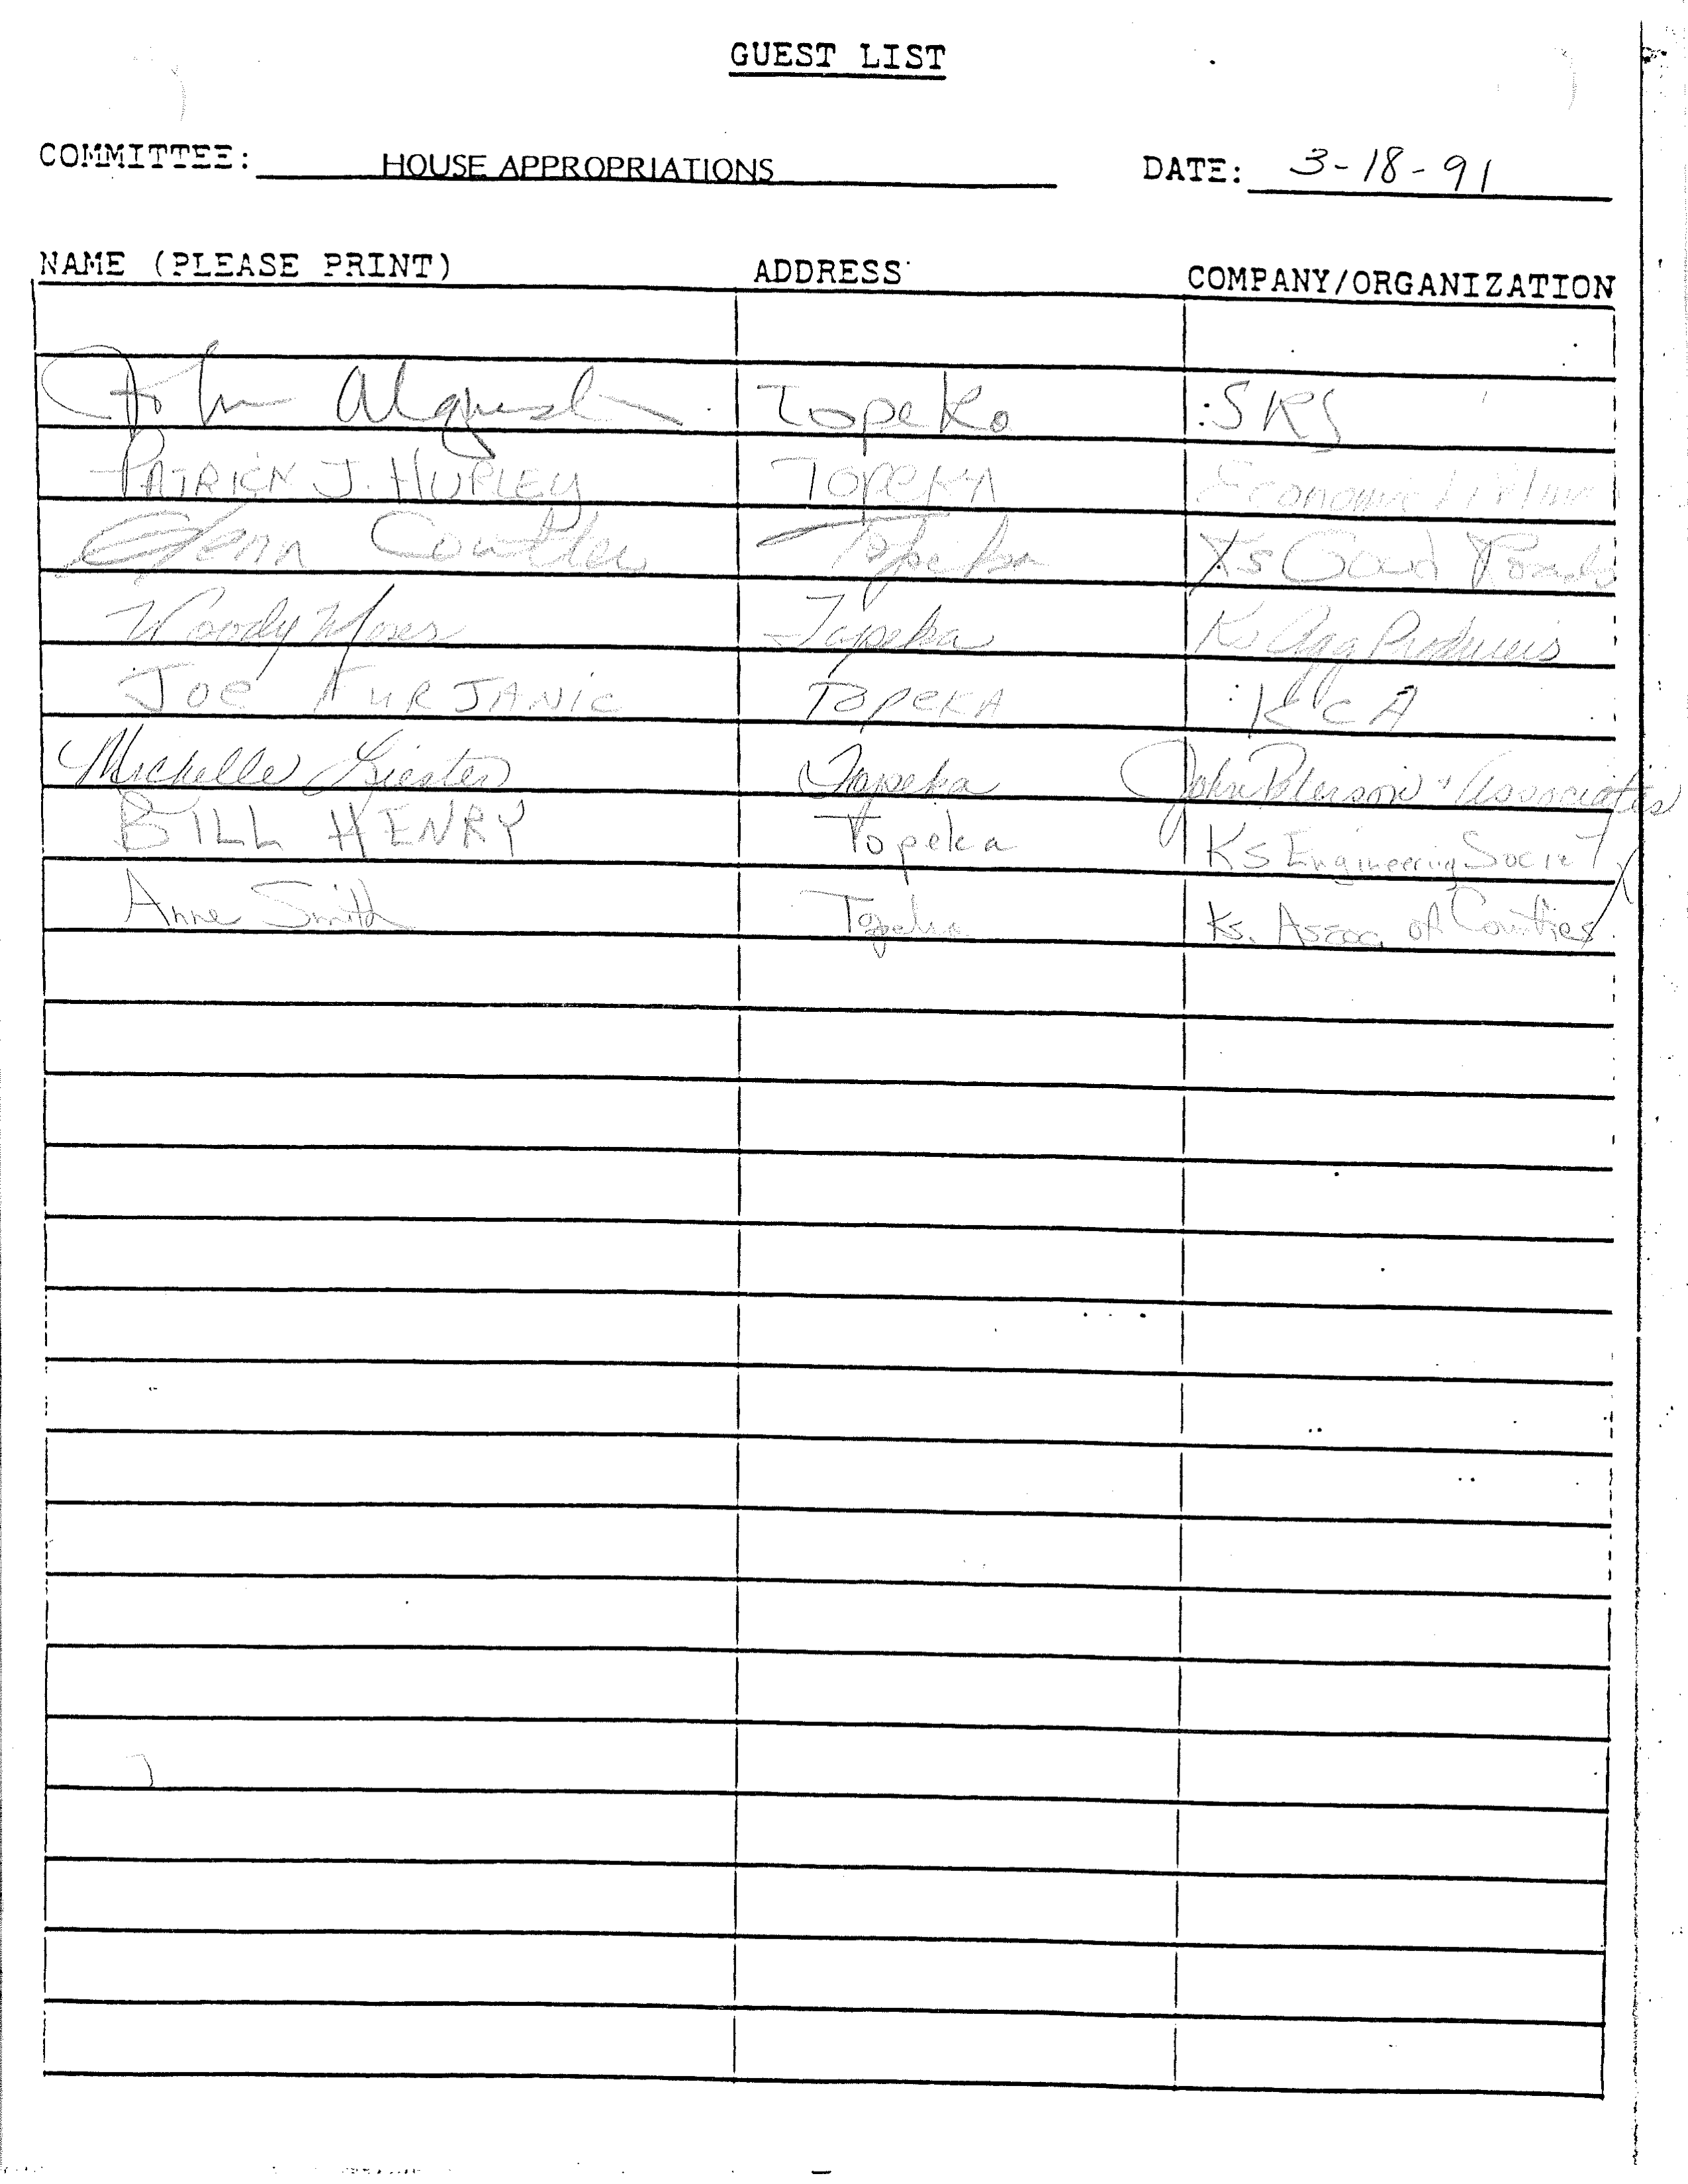 GUEST LIST
COMMITTEE: HOUSE APPROPRIATIONS DATE: 3-18-91
NAME (PLEASE PRINT) ADDRESS COMPANY/ORGANIZATION
John Topeka SRS
PATRICK J. HURLEY TOPEKA Economic
Glenn Coulter Topeka Ks Good Roads
Woody Moses Topeka Ks Agg Producers
JOE FURJANIC TOPEKA KCA
Michelle Liester Topeka John Peterson & Associates
BILL HENRY Topeka KS Engineering Society
Anne Smith Topeka Ks. Assoc of Counties